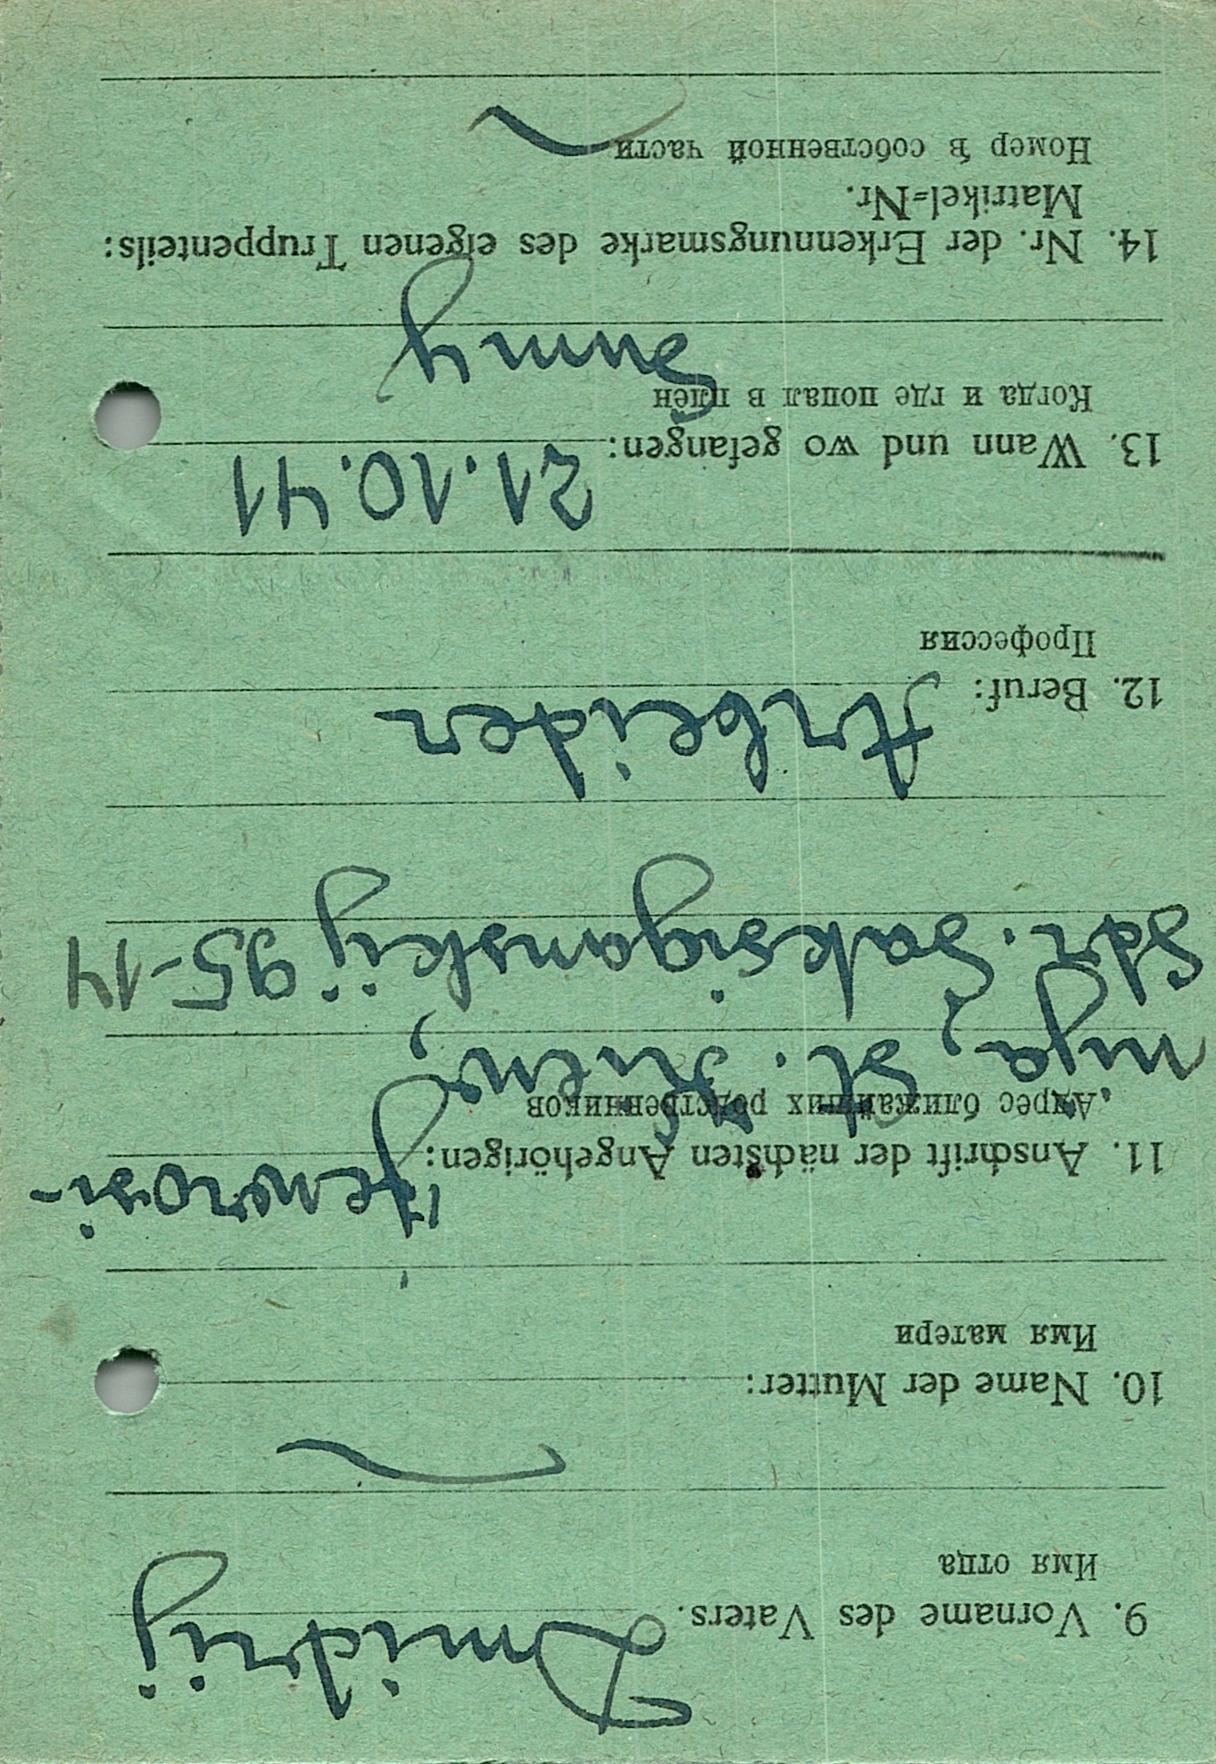 9. Vorname des Vaters.
Имя отца
Dmidrij
10. Name der Mutter:
Имя матери
11. Anschrift der nächsten Angehörigen:
Адрес ближайших родственников
nija, st. Kiew,
Str. Saksiganskij 95-14
12. Beruf:
Профессия
Arbeider
13. Wann und wo gefangen: 21.10.41
Когда и где попал в плен
Sumy
14. Nr. der Erkennungsmarke des eigenen Truppenteils:
Matrikel=Nr.
Номер в собственной части